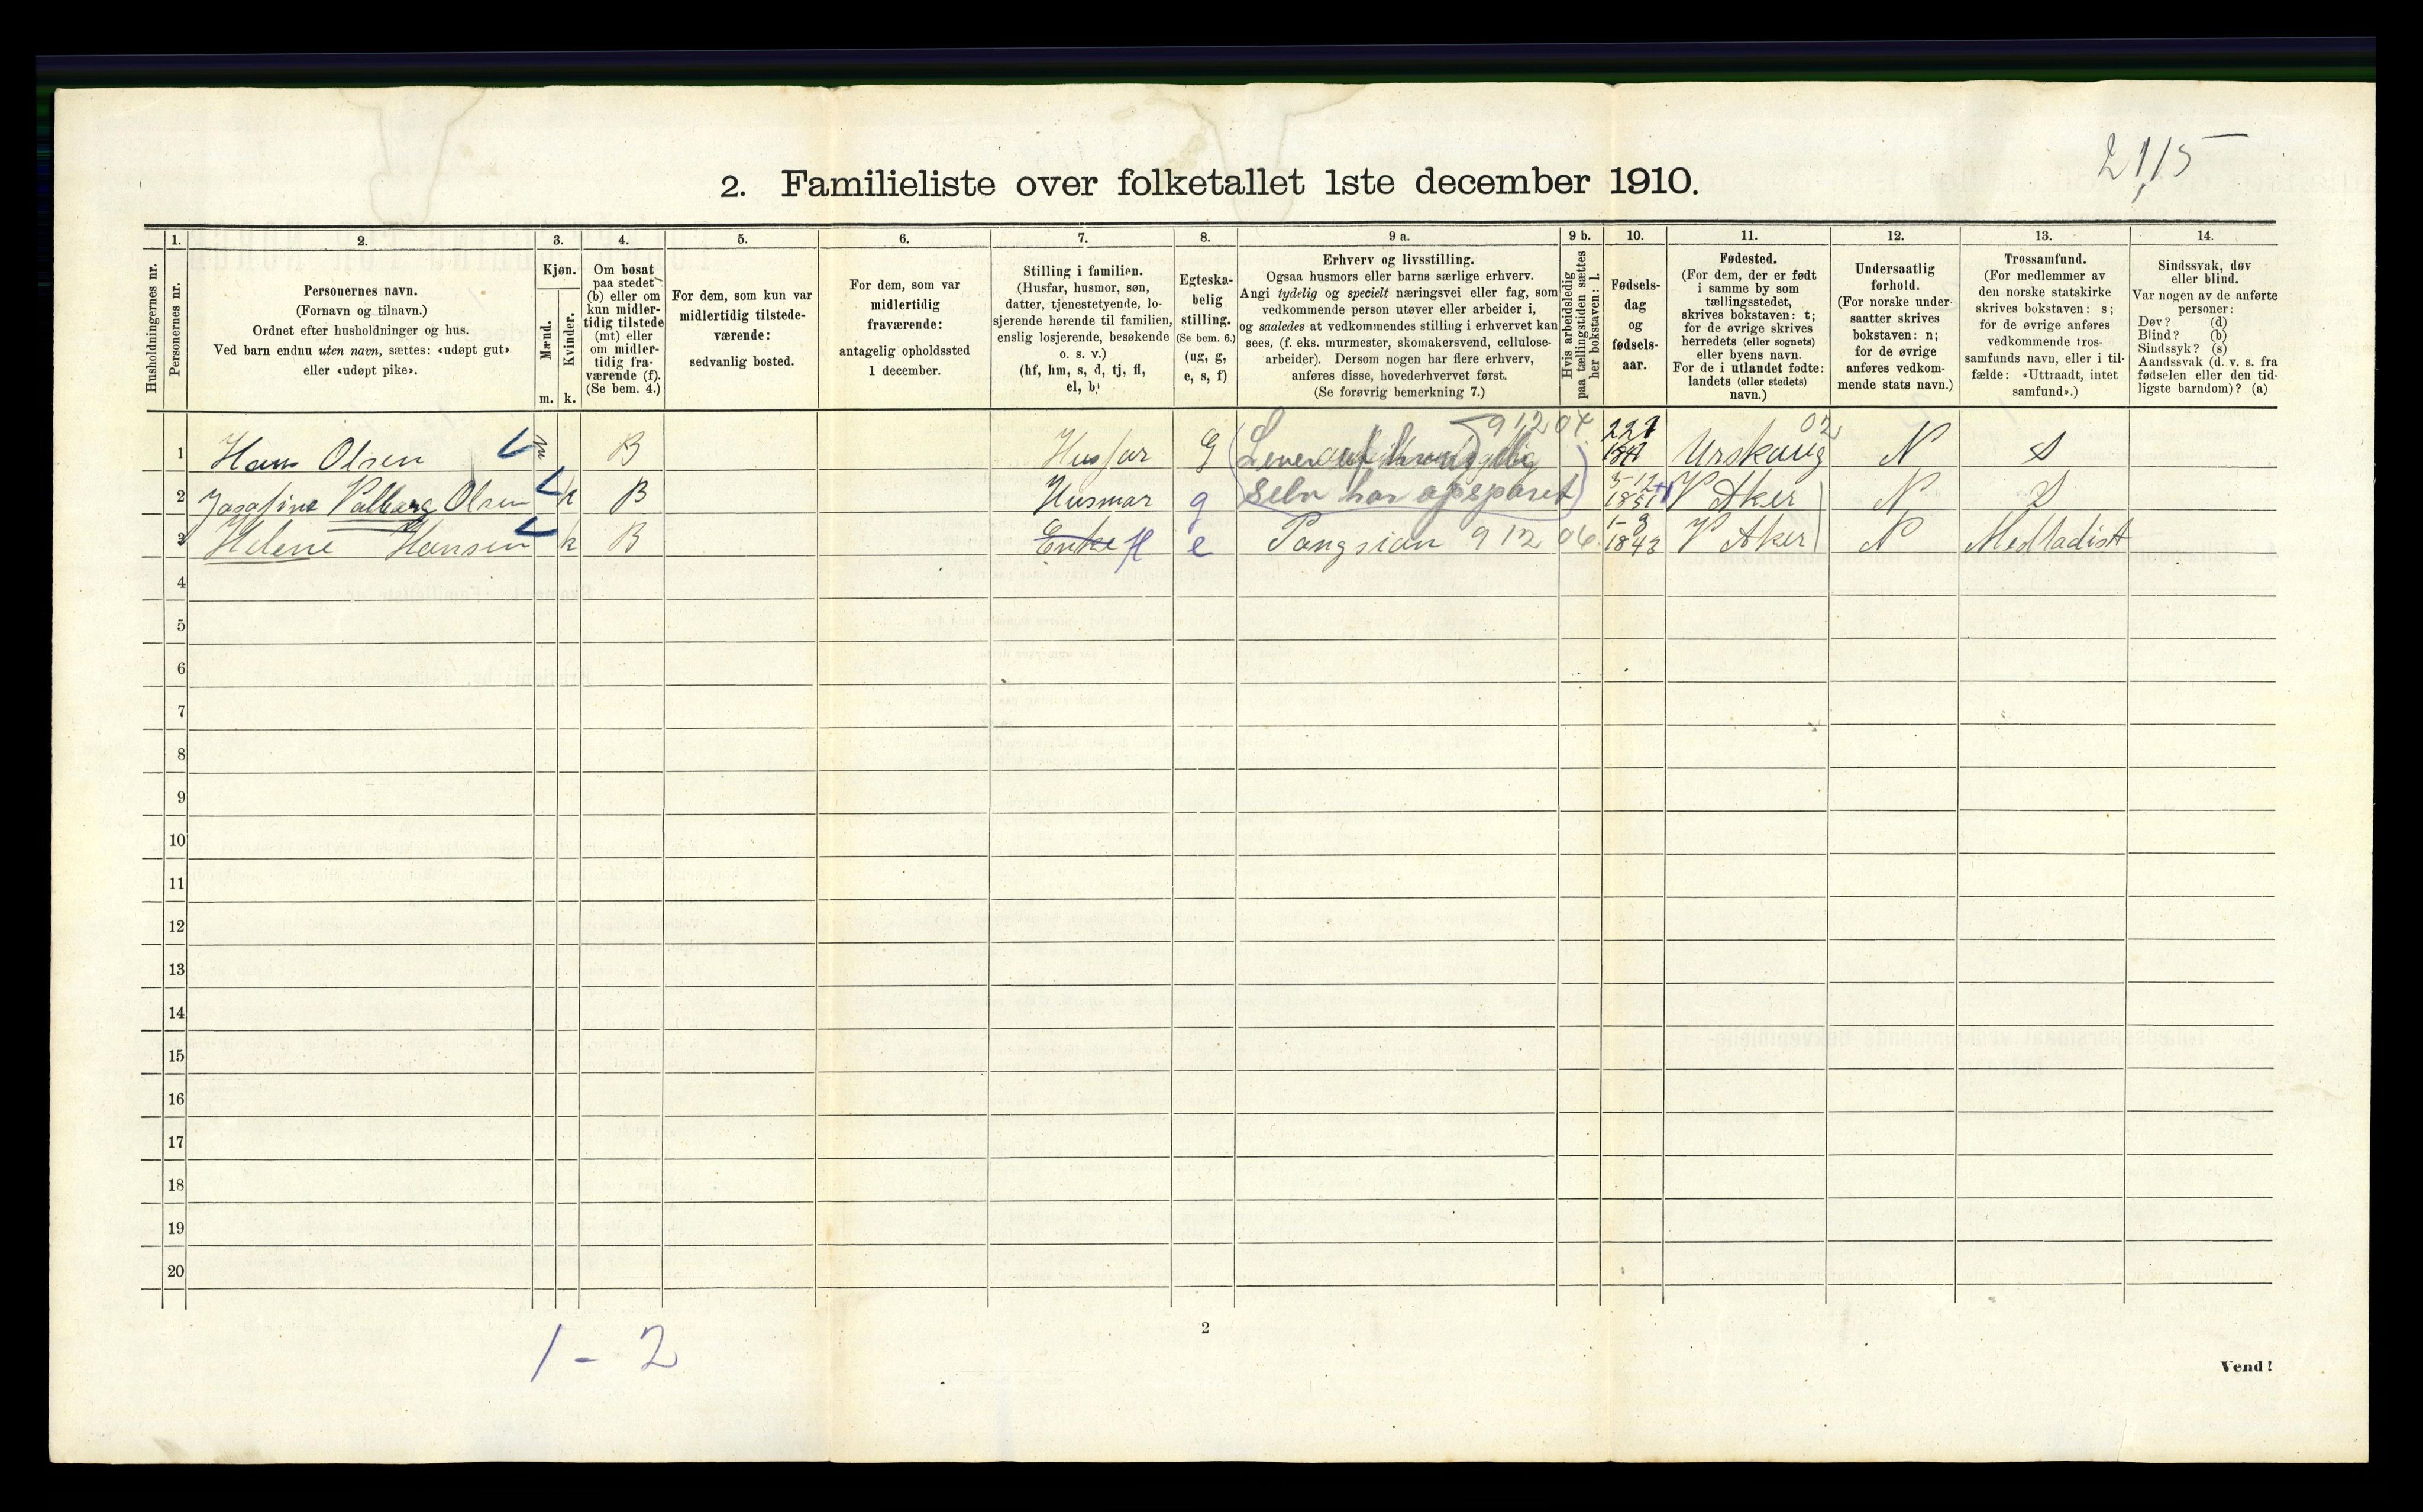 21,15
2. Familieliste over folketallet 1ste december 1910.
1. 2. 3. 4. 5. 6. 7. 8. 9 a. 9 b. 10. 11. 12. 13. 14.
Husholdningernes nr.
Personernes nr.
Personernes navn.
(Fornavn og tilnavn.)
Ordnet efter husholdninger og hus.
Ved barn endnu uten navn, sættes: «udøpt gut»
eller «udøpt pike».
Kjøn.
Mænd.
Kvinder.
m. k.
Om bosat
paa stedet
(b) eller om
kun midler-
tidig tilstede
(mt) eller
om midler-
tidig fra-
værende (f).
(Se bem. 4.)
For dem, som kun var
midlertidig tilstede-
værende:
sedvanlig bosted.
For dem, som var
midlertidig
fraværende:
antagelig opholdssted
1 december.
Stilling i familien.
(Husfar, husmor, søn,
datter, tjenestetyende, lo-
sjerende hørende til familien,
enslig losjerende, besøkende
o. s. v.)
(hf, hm, s, d, tj, fl,
el, b)
Egteska-
belig
stilling.
(Se bem. 6.)
(ug, g,
e, s, f)
Erhverv og livsstilling.
Ogsaa husmors eller barns særlige erhverv.
Angi tydelig og specielt næringsvei eller fag, som
vedkommende person utøver eller arbeider i,
og saaledes at vedkommendes stilling i erhvervet kan
sees, (f. eks. murmester, skomakersvend, cellulose-
arbeider). Dersom nogen har flere erhverv,
anføres disse, hovederhvervet først.
(Se forøvrig bemerkning 7.)
Hvis arbeidsledig
paa tællingstiden sættes
her bokstaven: l.
Fødsels-
dag
og
fødsels-
aar.
Fødested.
(For dem, der er født
i samme by som
tællingsstedet,
skrives bokstaven: t;
for de øvrige skrives
herredets (eller sognets)
eller byens navn.
For de i utlandet fødte:
landets (eller stedets)
navn.)
Undersaatlig
forhold.
(For norske under-
saatter skrives
bokstaven: n;
for de øvrige
anføres vedkom-
mende stats navn.)
Trossamfund.
(For medlemmer av
den norske statskirke
skrives bokstaven: s;
for de øvrige anføres
vedkommende tros-
samfunds navn, eller i til-
fælde: «Uttraadt, intet
samfund».)
Sindssvak, døv
eller blind.
Var nogen av de anførte
personer:
Døv? (d)
Blind? (b)
Sindssyk? (s)
Aandssvak (d. v. s. fra
fødselen eller den tid-
ligste barndom)? (a)
912 04 02
1 Hans Olsen m B Husfar G Urskaug N S
2 Josafine Valborg Olsen k B Husmor g selv har opsparet 3-12 1851 V Aker N S
3 Helene Hansen k B Enke H e Pangsian 912 06 1-8 1843 V Aker N Mettadist
4
5
6
7
8
9
10
11
12
13
14
15
16
17
18
19
20
1 - 2
2
Vend!